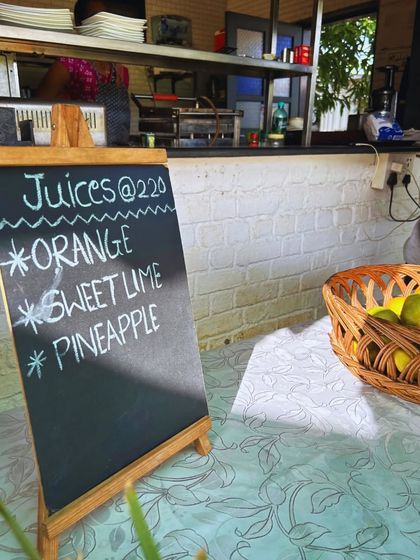 Juices @ 220
*ORANGE
*SWEET LIME
*PINEAPPLE